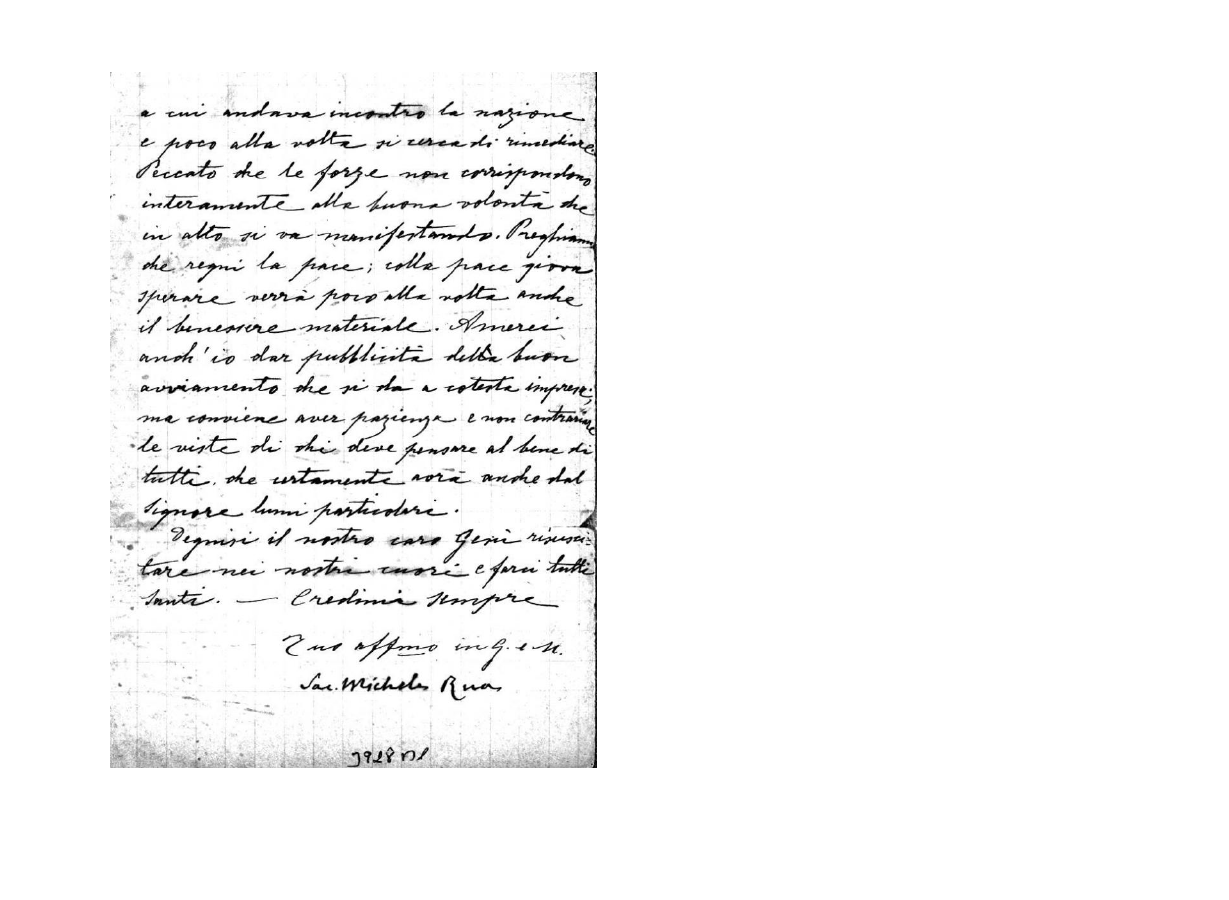 a cui andava incontro la nazione
e poco alla volta si cerca di rimediare.
Peccato che le forze non corrispondono
interamente alla buona volontà che
in alto si va manifestando. Preghiamo
che regni la pace; colla pace giova
sperare verrà poco alla volta anche
il benessere materiale. Amerei
anch'io dar pubblicità della buon
avviamento che si da a cotesta impresa;
ma conviene aver pazienza e non contrariare
le viste di chi deve pensare al bene di
tutti. che certamente avrà anche dal
Signore lumi particolari.
Degnisi il nostro caro Gesù risusci-
tare nei nostri cuori e farci tutti
santi. — Credimi sempre
Tuo affmo in G. e M.
Sac. Michele Rua